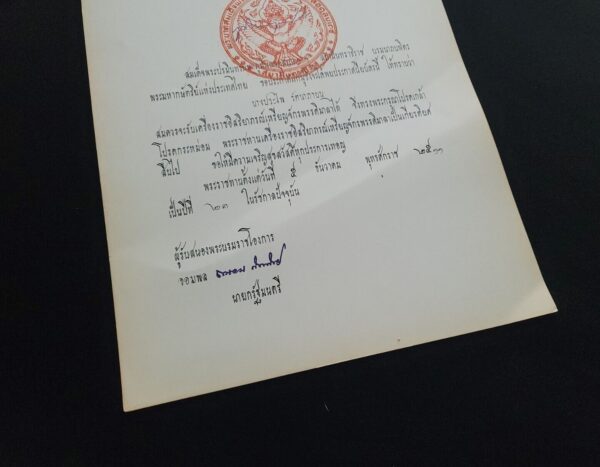 สมเด็จพระปรมินทร
พระมหากษัตริย์แห่งประเทศไทย ขอประกาศแก่ผู้ซึ่งได้พบประกาศนียบัตรนี้ ให้ทราบว่า
นางประไพ
สมควรจะรับเครื่องราชอิสริยาภรณ์เหรียญจักรพรรดิมาลาได้ จึ่งทรงพระกรุณาโปรดเกล้า
โปรดกระหม่อม พระราชทานเครื่องราชอิสริยาภรณ์เหรียญจักรพรรดิมาลาเป็นเกียรติยศ
สืบไป ขอให้มีความเจริญสุขสวัสดิ์ทุกประการเทอญ
พระราชทานตั้งแต่วันที่ ๕ ธันวาคม พุทธศักราช ๒๕๑๑
เป็นปีที่ ๒๓ ในรัชกาลปัจจุบัน
ผู้รับสนองพระบรมราชโองการ
จอมพล
นายกรัฐมนตรี